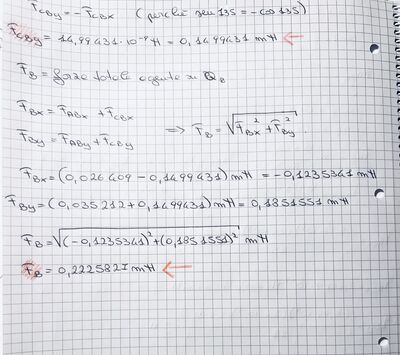 F_CBy = -F_CBx (perché sen 135 = -cos 135)
F_CBy = 14,99431·10⁻⁵ N = 0,1499431 mN ←
F_B = forza totale agente su Q_B
F_Bx = F_ABx + F_CBx
F_By = F_ABy + F_CBy ⇒ F_B = √(F_Bx² + F_By²)
F_Bx = (0,026409 - 0,1499431) mN = -0,1235341 mN
F_By = (0,035212 + 0,1499431) mN = 0,1851551 mN
F_B = √((-0,1235341)² + (0,1851551)²) mN
F_B = 0,2225827 mN ←